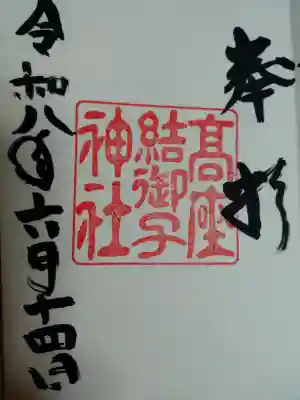 奉拝
高座
結御子
神社
令和八年六月十四日